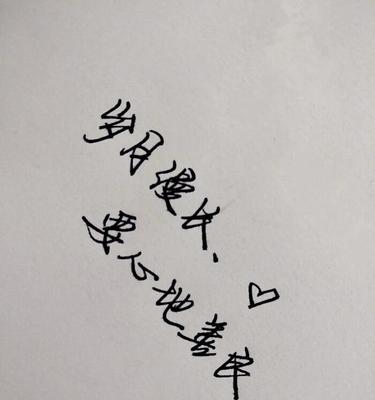 岁月漫长，
要心地善良